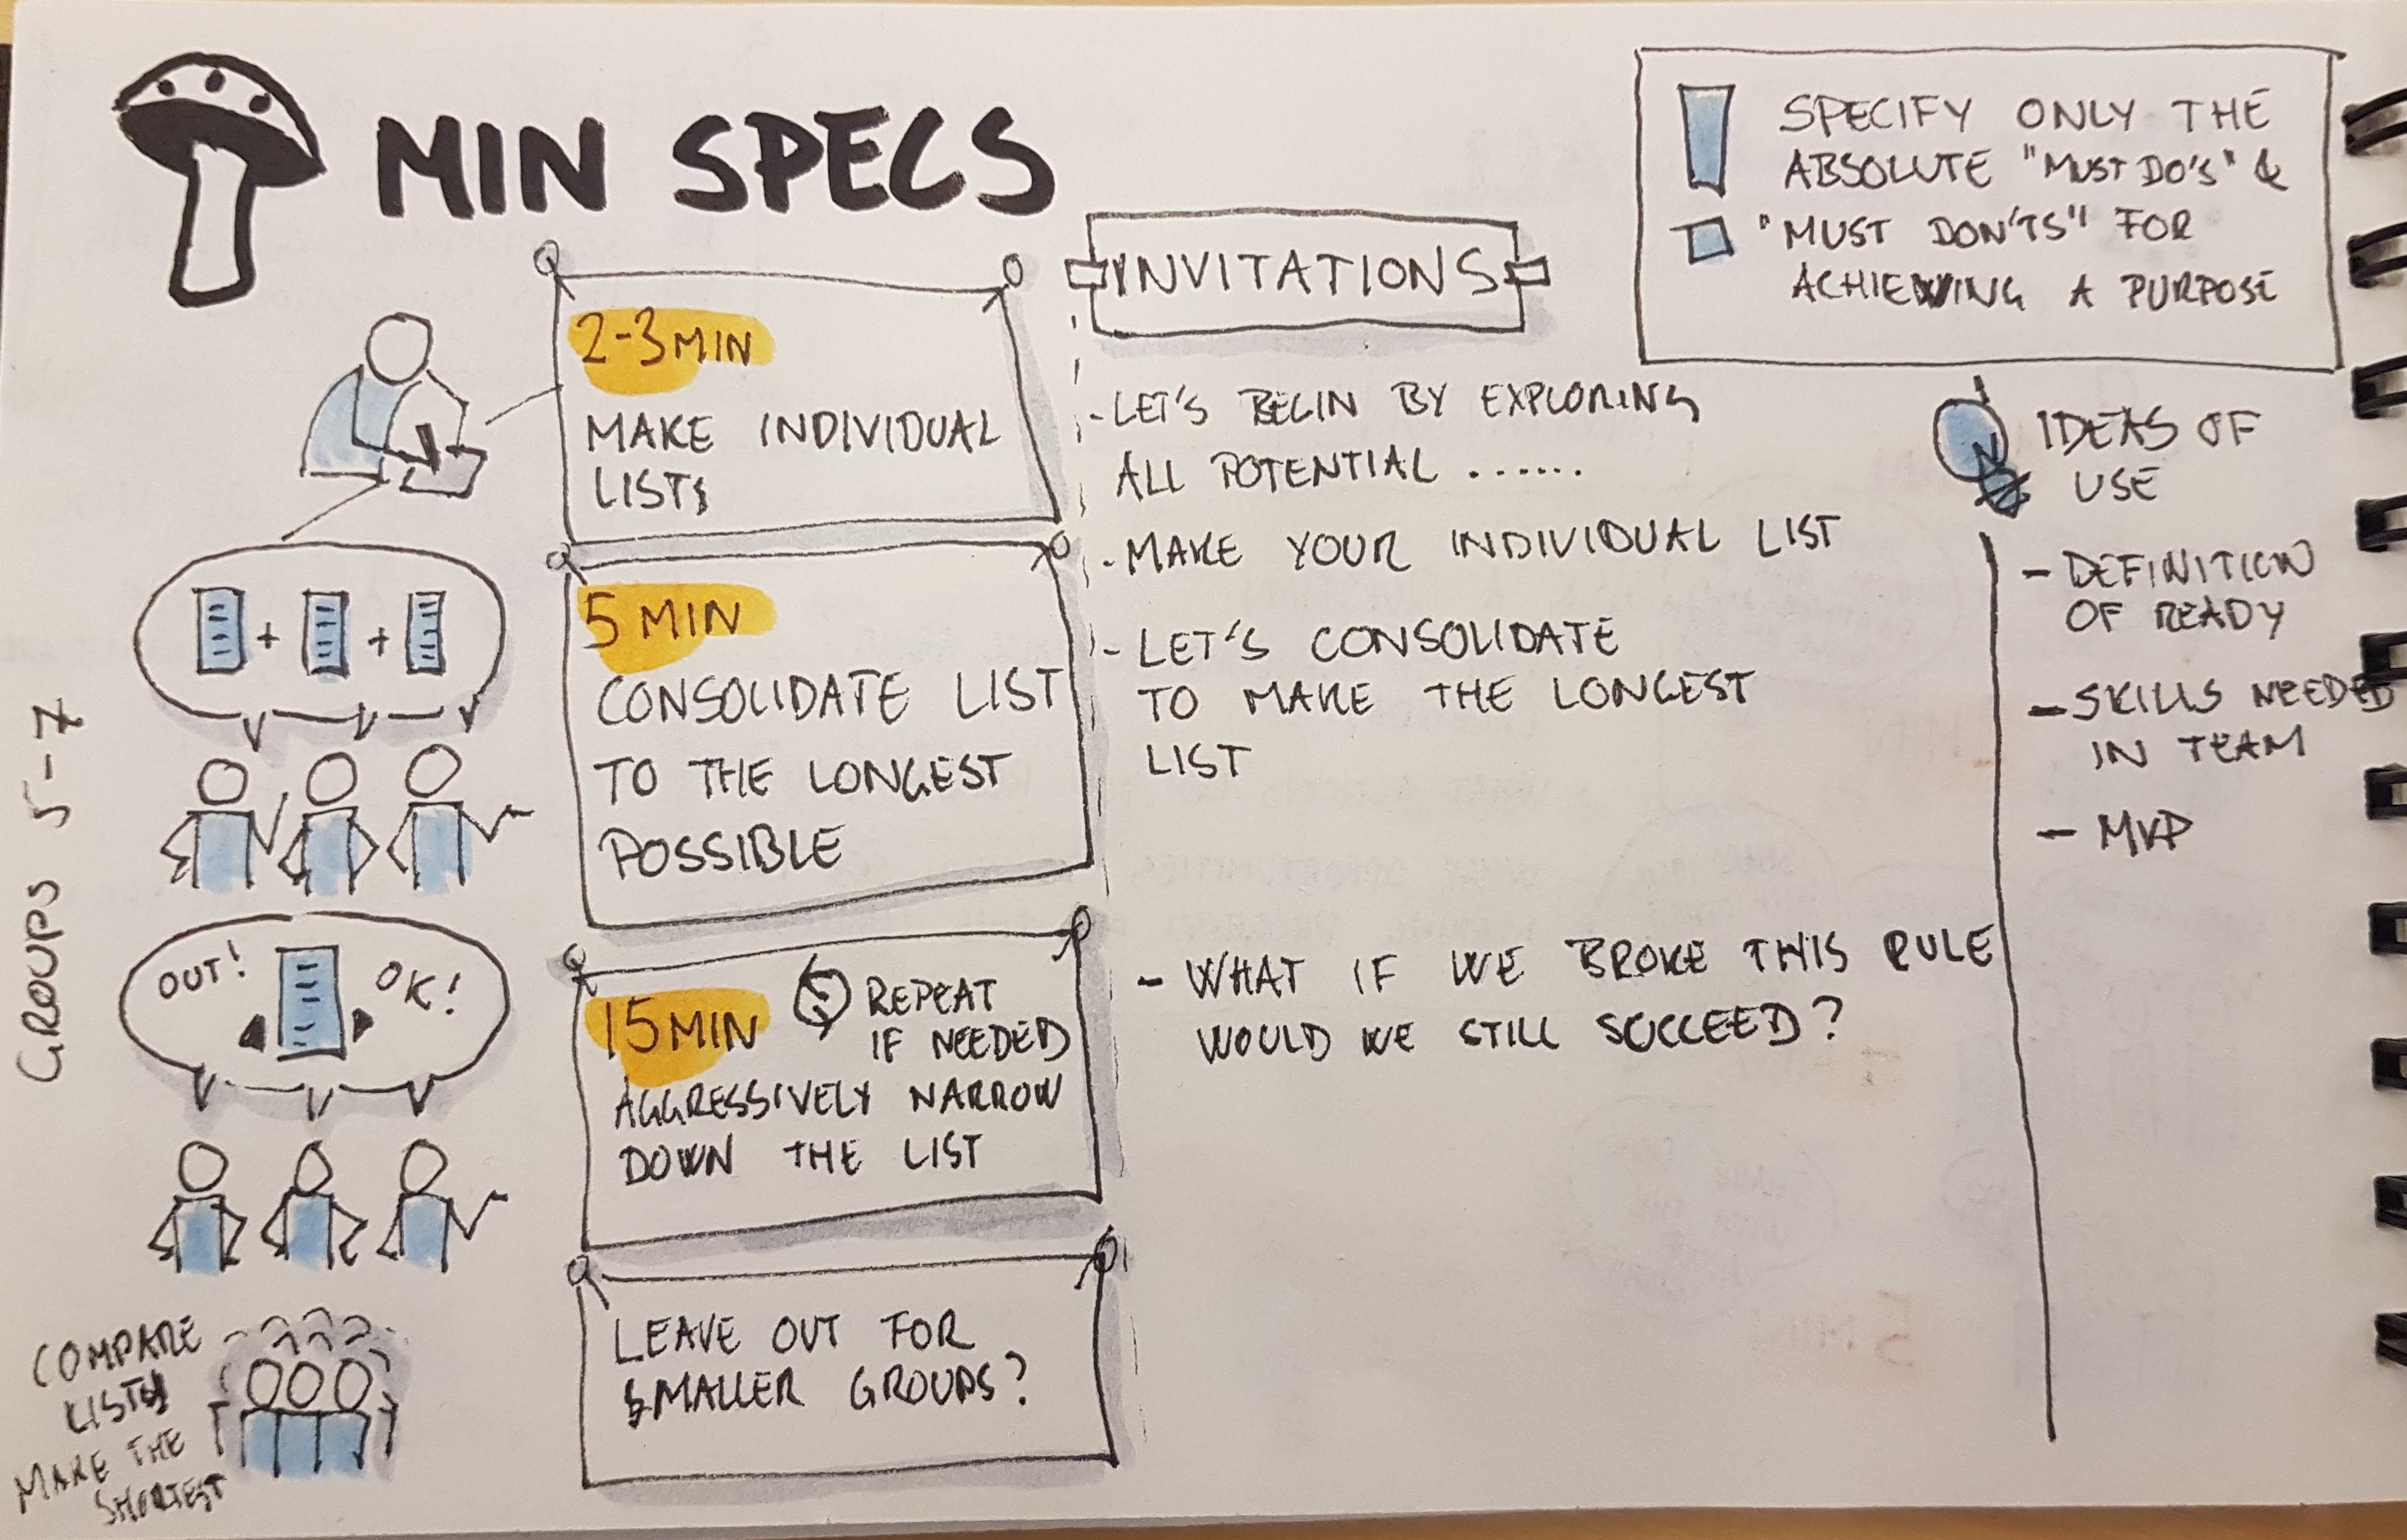 MIN SPECS
SPECIFY ONLY THE
ABSOLUTE "MUST DO'S" &
"MUST DON'TS" FOR
ACHIEVING A PURPOSE
GROUPS 5-7
2-3 MIN
MAKE INDIVIDUAL
LISTS
5 MIN
CONSOLIDATE LIST
TO THE LONGEST
POSSIBLE
OUT!
OK!
15 MIN
REPEAT
IF NEEDED
AGGRESSIVELY NARROW
DOWN THE LIST
COMPARE
LISTS
MAKE THE
SHORTEST
LEAVE OUT FOR
SMALLER GROUPS?
INVITATIONS
-LET'S BEGIN BY EXPLORING
ALL POTENTIAL ......
-MAKE YOUR INDIVIDUAL LIST
- LET'S CONSOLIDATE
TO MAKE THE LONGEST
LIST
- WHAT IF WE BROKE THIS RULE
WOULD WE STILL SUCCEED?
IDEAS OF
USE
- DEFINITION
OF READY
- SKILLS NEEDED
IN TEAM
- MVP